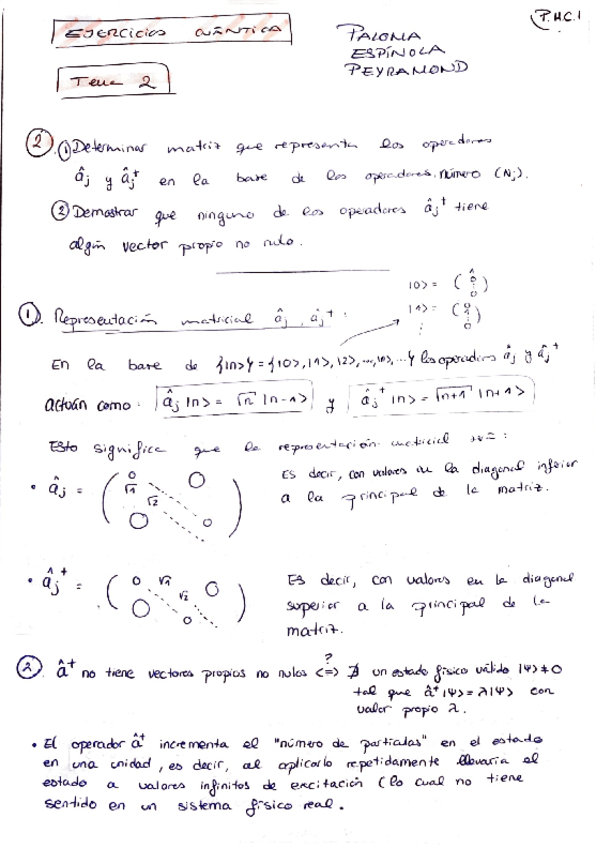 P.H.C.1
EJERCICIOS CUÁNTICA
PALOMA
ESPÍNOLA
PEYRAMOND
Tema 2
② ① Determinar matriz que representa los operadores
âⱼ y âⱼ⁺ en la base de los operadores número (Nⱼ).
② Demostrar que ninguno de los operadores âⱼ⁺ tiene
algún vector propio no nulo.
|0> = (1 0 ⋮ 0)
|1> = (0 1 ⋮ 0)
⋮
①. Representación matricial âⱼ, âⱼ⁺:
En la base de {|n>} = {|0>, |1>, |2>, ..., |n>, ...} los operadores âⱼ y âⱼ⁺
actúan como: âⱼ |n> = √n |n-1> y âⱼ⁺ |n> = √n+1 |n+1>
Esto significa que la representación matricial :
• âⱼ = ( 0 √1 √2 0 0 0 )
Es decir, con valores en la diagonal inferior
a la principal de la matriz.
• âⱼ⁺ = ( 0 √1 √2 0 0 0 )
Es decir, con valores en la diagonal
superior a la principal de la
matriz.
② â⁺ no tiene vectores propios no nulos <=>? ∄ un estado físico válido |Ψ> ≠ 0
tal que â⁺|Ψ> = λ|Ψ> con
valor propio λ.
• El operador â⁺ incrementa el "número de partículas" en el estado
en una unidad, es decir, al aplicarlo repetidamente llevaría el
estado a valores infinitos de excitación (lo cual no tiene
sentido en un sistema físico real.